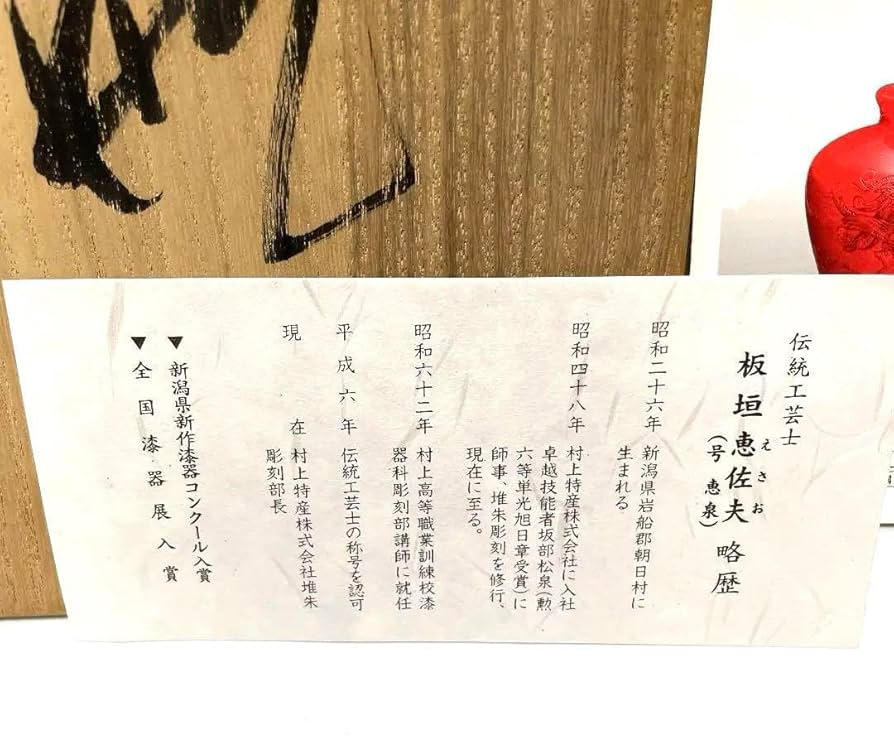 伝統工芸士
板垣恵佐夫 略歴
えさお
(号 恵泉)
昭和二十六年 新潟県岩船郡朝日村に
生まれる
昭和四十八年 村上特産株式会社に入社
卓越技能者坂部松泉(勲
六等単光旭日章受賞)に
師事、堆朱彫刻を修行、
現在に至る。
昭和六十二年 村上高等職業訓練校漆
器科彫刻部講師に就任
平成六年 伝統工芸士の称号を認可
現在 村上特産株式会社堆朱
彫刻部長
▼新潟県新作漆器コンクール入賞
▼全国漆器展入賞